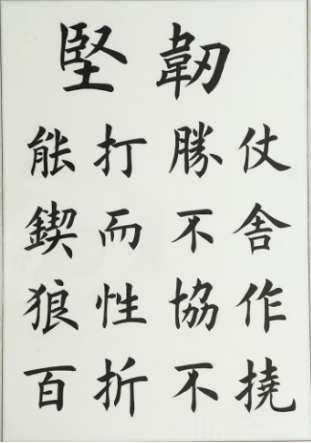 堅韌
能打勝仗
鍥而不舍
狼性協作
百折不撓